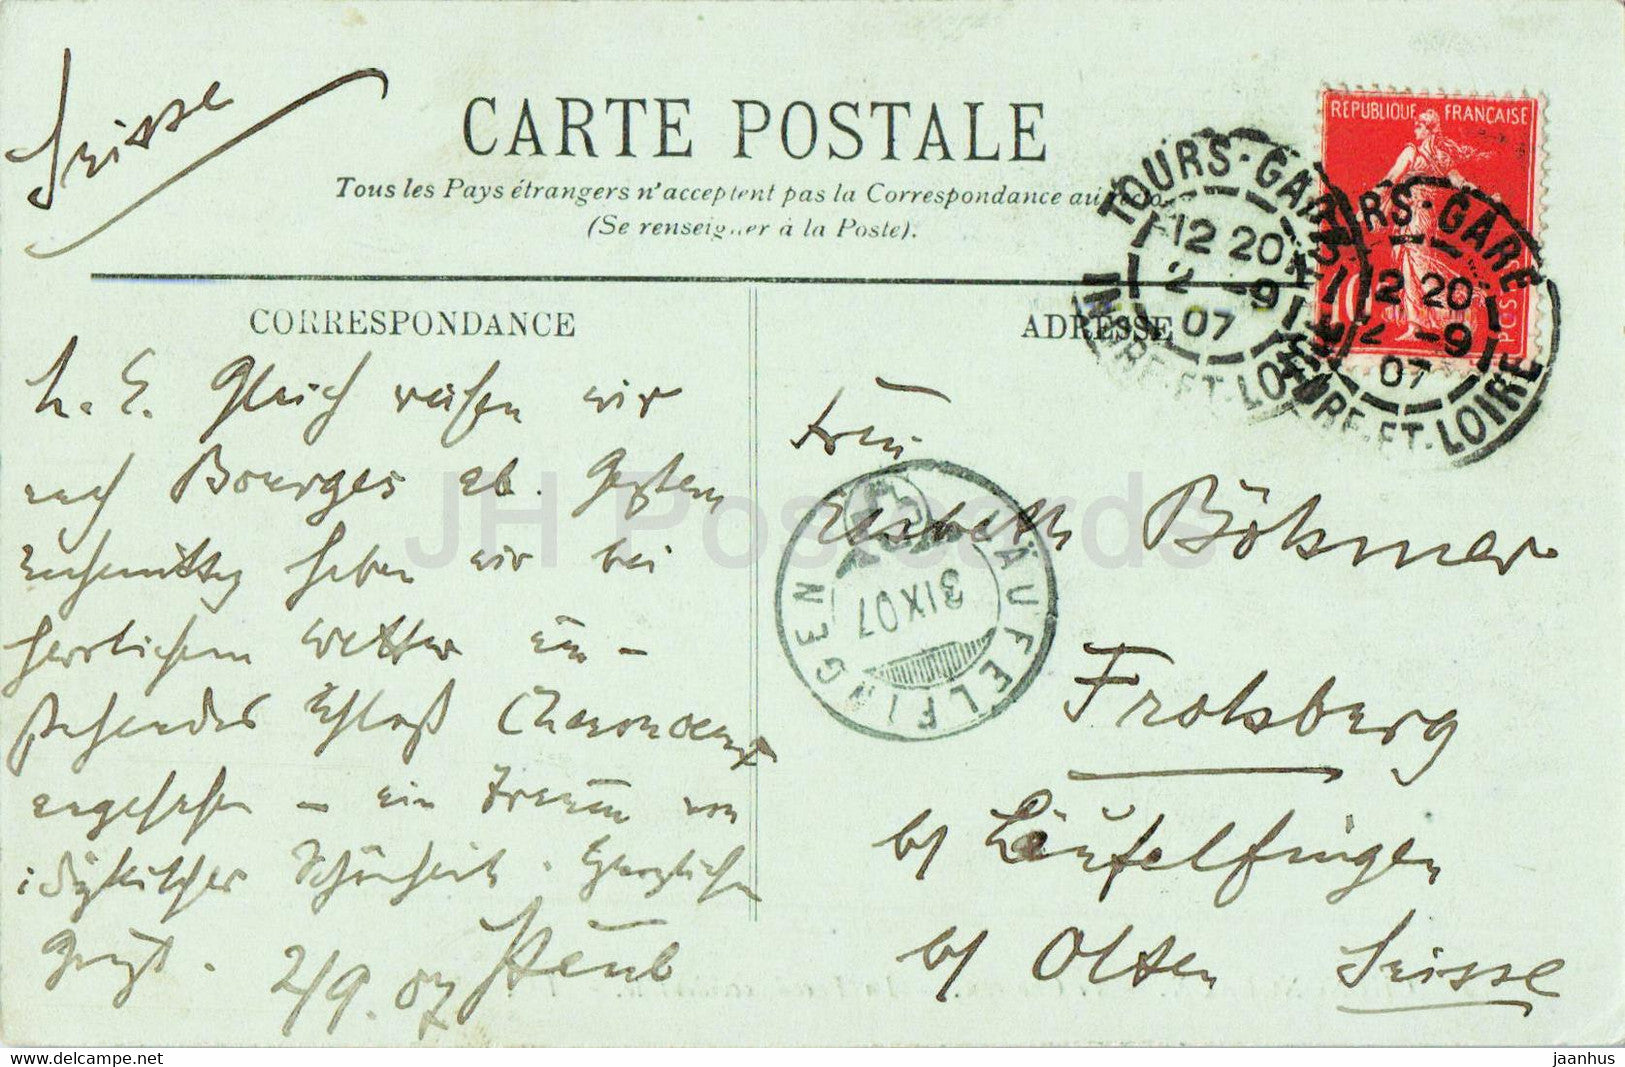 Suisse
CARTE POSTALE
Tous les Pays étrangers n'acceptent pas la Correspondance au recto
(Se renseigner à la Poste).
REPUBLIQUE FRANÇAISE
POSTES
10
TOURS-GARE
12 20
2 -9
07
INDRE-ET-LOIRE
TOURS-GARE
12 20
2 -9
07
INDRE-ET-LOIRE
CORRESPONDANCE
ADRESSE
L. E. Gleich reisen wir
nach Bourges ab. Gestern
nachmittag haben wir bei
herrlichem Wetter
stehendes Schloß Chenonceaux
angesehen – ein Traum von
idyllischer Schönheit. Herzlichen
Gruß. 2/9.07
Frau
Elisabeth Böhmer
Frohberg
b/ Läufelfingen
b/ Olten Suisse
LÄUFELFINGEN
3 IX 07
JH Postcards
Delcampe.net
jaanhus